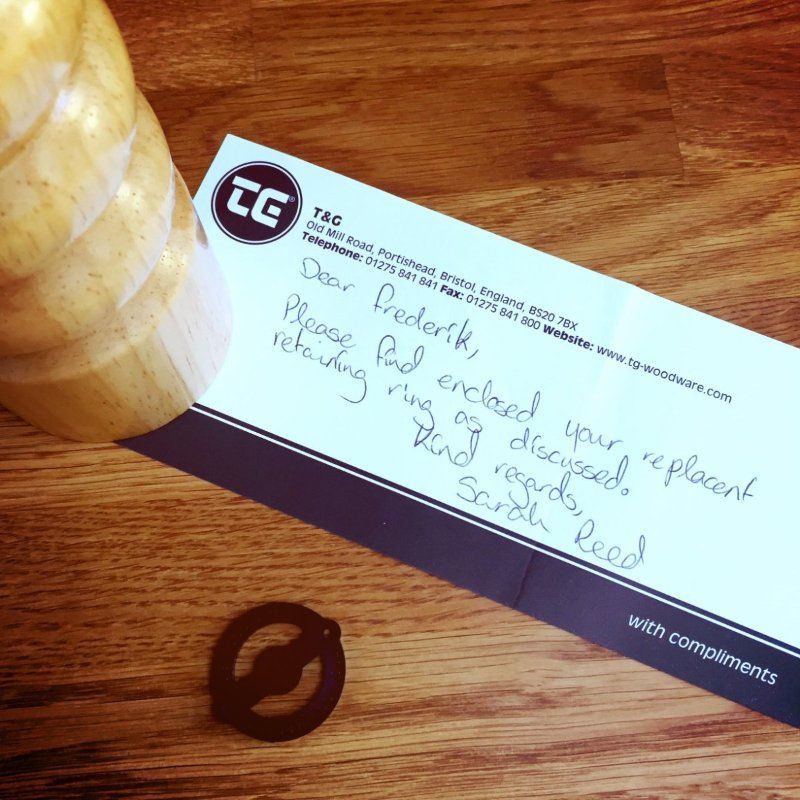 TG®
T&G
Old Mill Road, Portishead, Bristol, England, BS20 7BX
Telephone: 01275 841 841 Fax: 01275 841 800 Website: www.tg-woodware.com
Dear Frederik,
Please find enclosed your replacent
retaining ring as discussed.
Kind regards,
Sarah Reed
with compliments